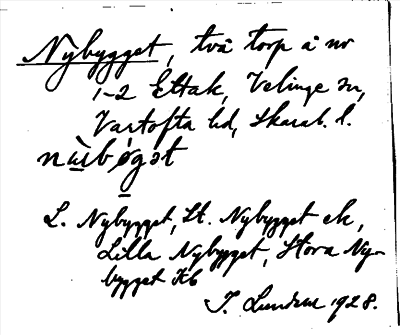 Nybygget, två torp å nr
1-2 Ettak, Velinge sn,
Vartofta hd, Skarab. l.
L. Nybygget, St. Nybygget ek,
Lilla Nybygget, Stora Ny-
bygget Hb
1928.